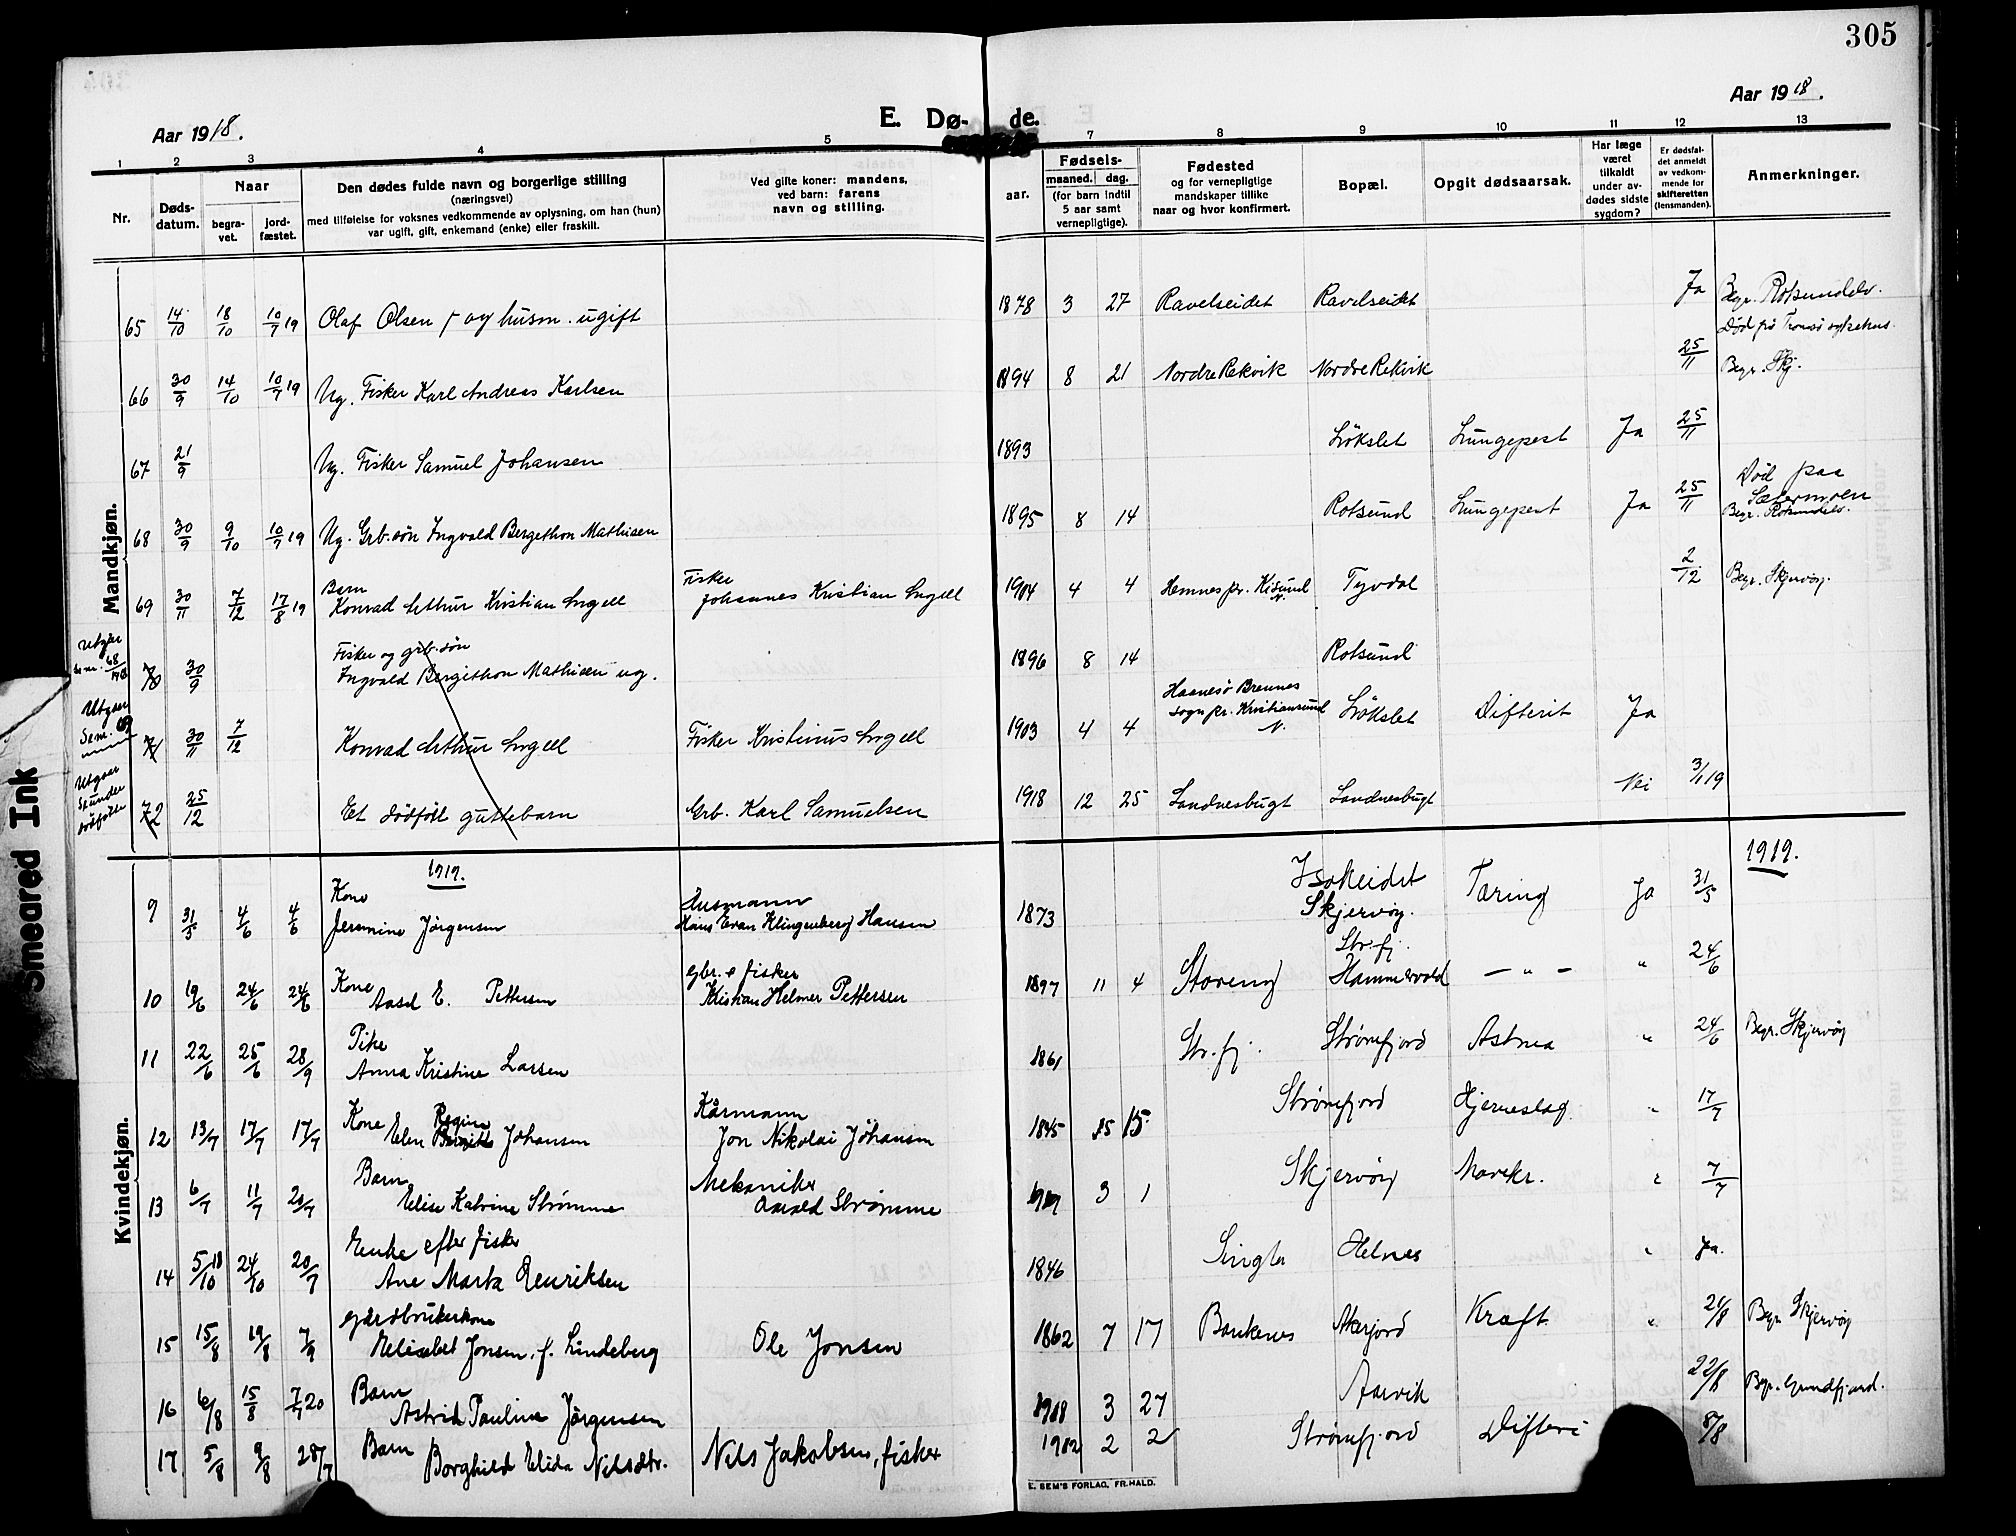 305
Aar 1918.
E. Dø- de.
Aar 1918.
1 2 3 4 5 7 8 9 10 11 12 13
Nr.
Døds-datum.
Naar
begra-vet.
jord-fæstet.
Den dødes fulde navn og borgerlige stilling
(næringsvei)
med tilføielse for voksnes vedkommende av oplysning, om han (hun)
var ugift, gift, enkemand (enke) eller fraskilt.
Ved gifte koner: mandens,
ved barn: farens
navn og stilling.
Fødsels-
aar.
maaned. dag.
(for barn indtil
5 aar samt
vernepligtige).
Fødested
og for vernepligtige
mandskaper tillike
naar og hvor konfirmert.
Bopæl.
Opgit dødsaarsak.
Har læge
været
tilkaldt
under av-
dødes sidste
sygdom?
Er dødsfal-
det anmeldt
av vedkom-
mende for
skifteretten
(lensmanden).
Anmerkninger.
Mandkjøn.
65 14/10 18/10 10/7 19 Olaf Olsen f og husm. ugift 1878 3 27 Ravelseidet Ravelseidet Ja Begr. Rotsundelv.
Død på Tromsö sykehus.
66 30/9 14/10 10/7 19 Ug. Fisker Karl Andreas Karlsen 1894 8 21 Nordre Rekvik Nordre Rekvik 25/11 Begr. Skj.
67 21/9 Ug. Fisker Samuel Johansen 1893 Lökslet Lungepest Ja 25/11
Død paa
Sætermoen
68 30/9 9/10 10/7 19 Ug. Grb. sön Ingvald Bergethon Mathisen 1895 8 14 Rotsund Lungepest Ja 25/11 Begr. Rotsundelv.
Barn
Fisker
69 30/11 7/12 17/8 19 Konrad Arthur Kristian Angell Johannes Kristian Angell 1904 4 4 Hemnes pr. Kr.sund N. Tyvdal 2/12 Begr. Skjervöy.
Utgår
se nr. 68/1918
Fisker og grb. sön
70 30/9 Ingvald Bergithon Mathisen ug. 1896 8 14 Rotsund
Utgaar
Se nr. 69
71 30/11 7/12 Konrad Arthur Angell Fisker Kristinus Angell 1903 4 4 Haanesö Brennes
sogn pr. Kristiansund N. Lökslet Difterit Ja
Utgaar
Se under
dödföte
72 25/12 Et dödföt guttebarn Grb. Karl Samuelsen 1918 12 25 Sandnesbugt Sandnesbugt Nei 3/1 19
Kvindekjøn.
1919.
1919.
Kone
Husmann
9 31/5 4/6 4/6 Jermine Jörgensen Hans Evan Klingenberg Hansen 1873 Isakeidet
Skjervöy. Tæring Ja 31/5
Kone
gbr. e fisker
10 19/6 24/6 24/6 Aasel E. Pettersen Kristian Helmer Pettersen 1897 11 4 Storeng Str. fj.
Hammervold — " — " 24/6
Pike
11 22/6 25/6 28/9 Anna Kristine Larsen 1861 Str. fj. Strömfjord Astma " 24/6 Begr. Skjervöy
Kone
Kårmann
12 13/7 17/7 17/7 Elen Regine Johansen Jon Nikolai Johansen 1845 15 Strömfjord Hjerneslag " 17/7
Barn
Mekaniker
13 6/7 11/7 20/7 Elise Katrine Strömme Oavald Strömme 1919 3 1 Skjervöy " 7/7
Enke efter fisker
14 5/10 18 24/10 20/7 Ane Marta Henriksen 1846 Singla Helnes " Ja.
gårdbrukerkone
15 15/8 19/8 7/9 Elisabet Jonsen, f. Lindeberg Ole Jonsen 1862 7 17 Baukenes Akerfjord Kræft " 21/8 Begr. Skjervöy
Barn
16 6/8 15/8 7/7 20 Astrid Pauline Jörgensen 1918 3 27 Aarvik 22/8 Begr. Grundfjord.
17 5/8 9/8 28/7 Barn Borghild Elida Nilsdtr. Nils Jakobsen, fisker 1912 2 2 Strömfjord Difteri 8/8
E. SEM'S FORLAG, FR.HALD.
Smeared Ink